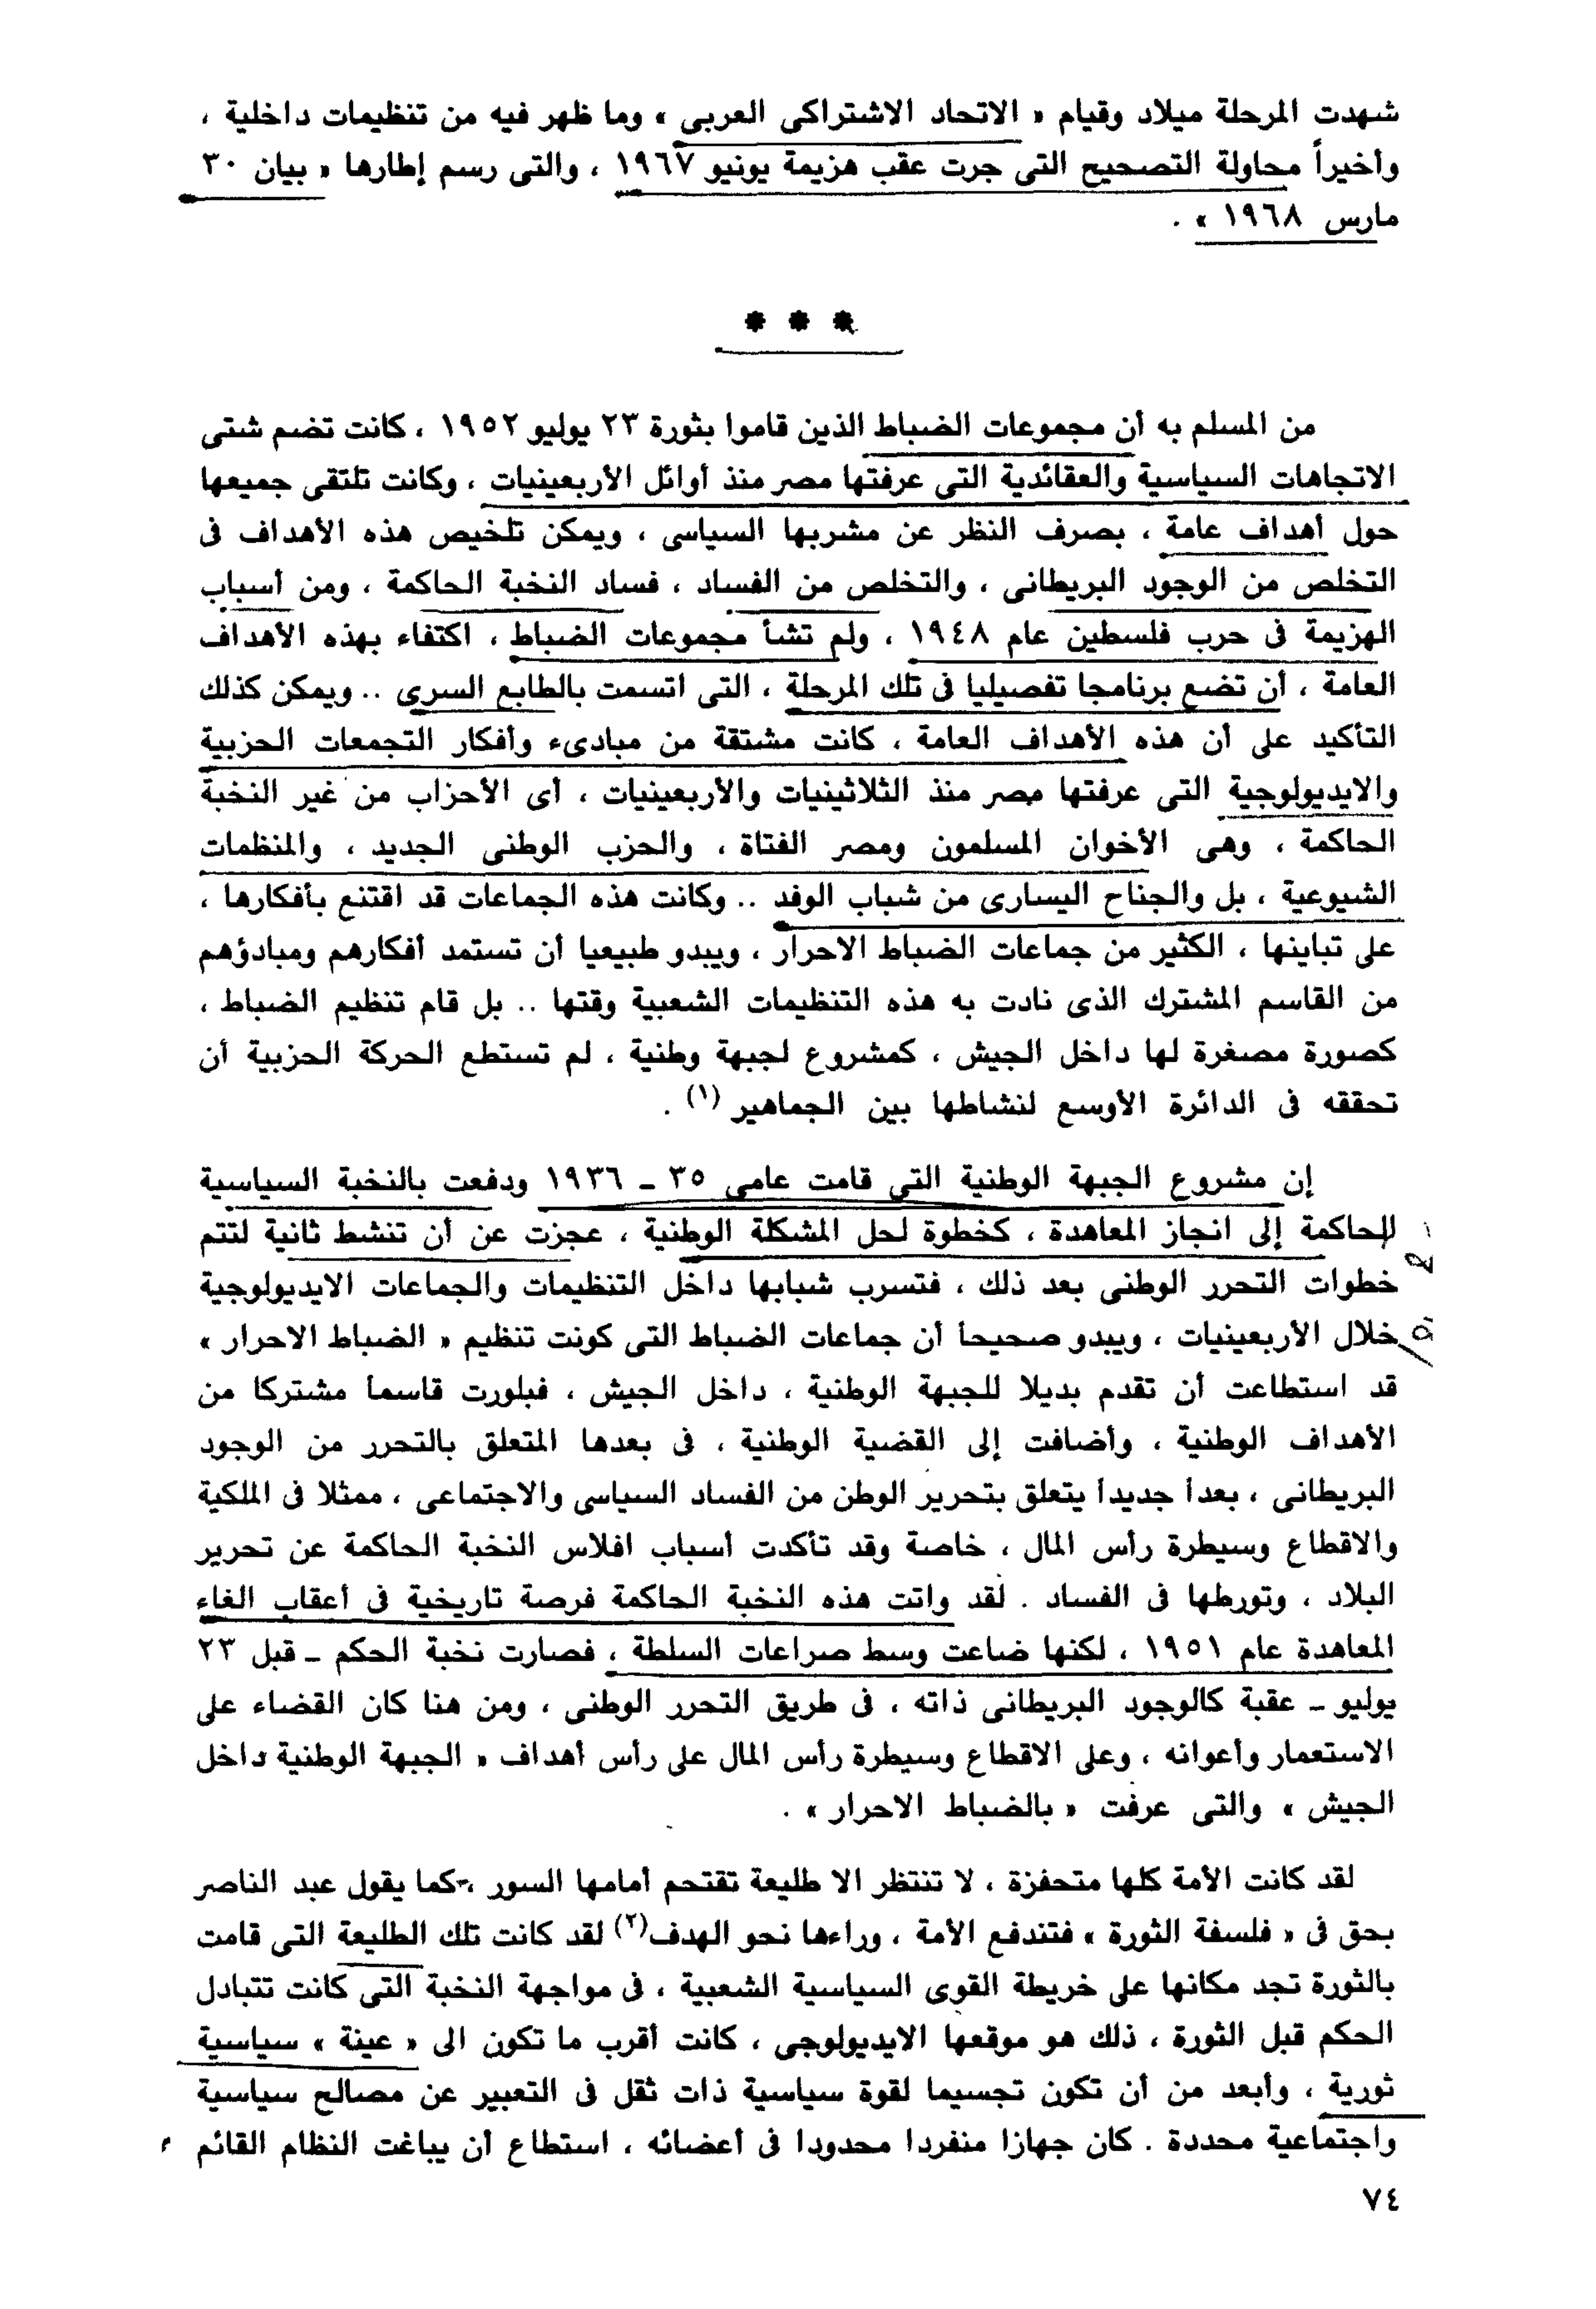 شهدت المرحلة ميلاد وقيام « الاتحاد الاشتراكى العربى » وما ظهر فيه من تنظيمات داخلية ،
وأخيراً محاولة التصحيح التى جرت عقب هزيمة يونيو ١٩٦٧ ، والتى رسم إطارها « بيان ٣٠
مارس ١٩٦٨ » .
* * *
من المسلم به أن مجموعات الضباط الذين قاموا بثورة ٢٣ يوليو ١٩٥٢ ، كانت تضم شتى
الاتجاهات السياسية والعقائدية التى عرفتها مصر منذ أوائل الأربعينيات ، وكانت تلتقى جميعها
حول أهداف عامة ، بصرف النظر عن مشربها السياسى ، ويمكن تلخيص هذه الأهداف فى
التخلص من الوجود البريطانى ، والتخلص من الفساد ، فساد النخبة الحاكمة ، ومن أسباب
الهزيمة فى حرب فلسطين عام ١٩٤٨ ، ولم تشأ مجموعات الضباط ، اكتفاء بهذه الأهداف
العامة ، أن تضع برنامجا تفصيليا فى تلك المرحلة ، التى اتسمت بالطابع السرى .. ويمكن كذلك
التأكيد على أن هذه الأهداف العامة ، كانت مشتقة من مبادىء وأفكار التجمعات الحزبية
والايديولوجية التى عرفتها مصر منذ الثلاثينيات والأربعينيات ، أى الأحزاب من غير النخبة
الحاكمة ، وهى الأخوان المسلمون ومصر الفتاة ، والحزب الوطنى الجديد ، والمنظمات
الشيوعية ، بل والجناح اليسارى من شباب الوفد .. وكانت هذه الجماعات قد اقتنع بأفكارها ،
على تباينها ، الكثير من جماعات الضباط الاحرار ، ويبدو طبيعيا أن تستمد أفكارهم ومبادؤهم
من القاسم المشترك الذى نادت به هذه التنظيمات الشعبية وقتها .. بل قام تنظيم الضباط ،
كصورة مصغرة لها داخل الجيش ، كمشروع لجبهة وطنية ، لم تستطع الحركة الحزبية أن
تحققه فى الدائرة الأوسع لنشاطها بين الجماهير (١) .
إن مشروع الجبهة الوطنية التى قامت عامى ٣٥ ــ ١٩٣٦ ودفعت بالنخبة السياسية
الحاكمة إلى انجاز المعاهدة ، كخطوة لحل المشكلة الوطنية ، عجزت عن أن تنشط ثانية لتتم
خطوات التحرر الوطنى بعد ذلك ، فتسرب شبابها داخل التنظيمات والجماعات الايديولوجية
خلال الأربعينيات ، ويبدو صحيحاً أن جماعات الضباط التى كونت تنظيم « الضباط الاحرار »
قد استطاعت أن تقدم بديلا للجبهة الوطنية ، داخل الجيش ، فبلورت قاسماً مشتركا من
الأهداف الوطنية ، وأضافت إلى القضية الوطنية ، فى بعدها المتعلق بالتحرر من الوجود
البريطانى ، بعداً جديداً يتعلق بتحرير الوطن من الفساد السياسى والاجتماعى ، ممثلا فى الملكية
والاقطاع وسيطرة رأس المال ، خاصة وقد تأكدت أسباب افلاس النخبة الحاكمة عن تحرير
البلاد ، وتورطها فى الفساد . لقد واتت هذه النخبة الحاكمة فرصة تاريخية فى أعقاب الغاء
المعاهدة عام ١٩٥١ ، لكنها ضاعت وسط صراعات السلطة ، فصارت نخبة الحكم ــ قبل ٢٣
يوليو ــ عقبة كالوجود البريطانى ذاته ، فى طريق التحرر الوطنى ، ومن هنا كان القضاء على
الاستعمار وأعوانه ، وعلى الاقطاع وسيطرة رأس المال على رأس أهداف « الجبهة الوطنية داخل
الجيش » والتى عرفت « بالضباط الاحرار » .
لقد كانت الأمة كلها متحفزة ، لا تنتظر الا طليعة تقتحم أمامها السور ، كما يقول عبد الناصر
بحق فى « فلسفة الثورة » فتندفع الأمة ، وراءها نحو الهدف(٢) لقد كانت تلك الطليعة التى قامت
بالثورة تجد مكانها على خريطة القوى السياسية الشعبية ، فى مواجهة النخبة التى كانت تتبادل
الحكم قبل الثورة ، ذلك هو موقعها الايديولوجى ، كانت أقرب ما تكون الى « عينة » سياسية
ثورية ، وأبعد من أن تكون تجسيما لقوة سياسية ذات ثقل فى التعبير عن مصالح سياسية
واجتماعية محددة . كان جهازا منفردا محدودا فى أعضائه ، استطاع أن يباغت النظام القائم
٧٤